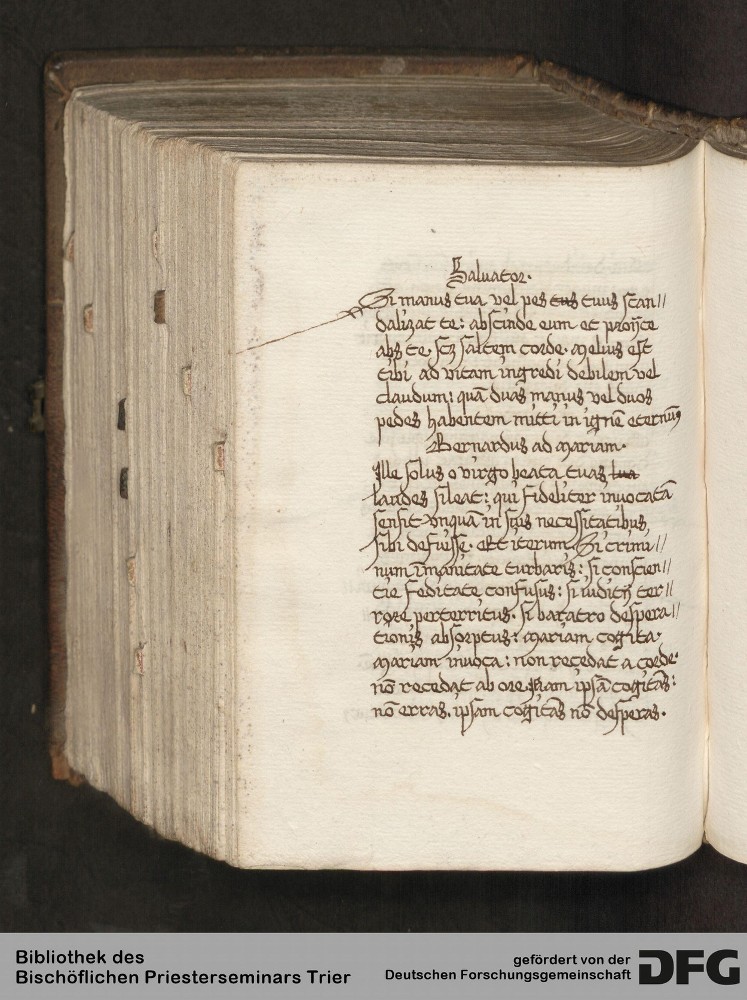 Saluator.
Si manus tua vel pes tus tuus scan//
dalizat te: abscinde eum et proijce
abs te. scz saltem corde. Melius est
tibi ad vitam ingredi debilem vel
claudum: quā duas manus vel duos
pedes habentem mitti in ignē eternū
Bernardus ad Mariam.
Ille solus o virgo beata tuas tua
laudes sileat: qui fideliter inuocatā
sensit vnquā in suis necessitatibus
sibi defuisse. Et iterum. Si crimi//
num īmanitate turbaris: si conscien//
tie feditate confusus: si iudicij ter//
rore perterritus. si baratro despera//
tionis absorptus: Mariam cogita.
Mariam inuoca: non recedat a corde.
nō recedat ab ore. ipsā cogitās:
nō erras. ipsam cogitās nō desperas.
Bibliothek des
Bischöflichen Priesterseminars Trier
gefördert von der
Deutschen Forschungsgemeinschaft
DFG